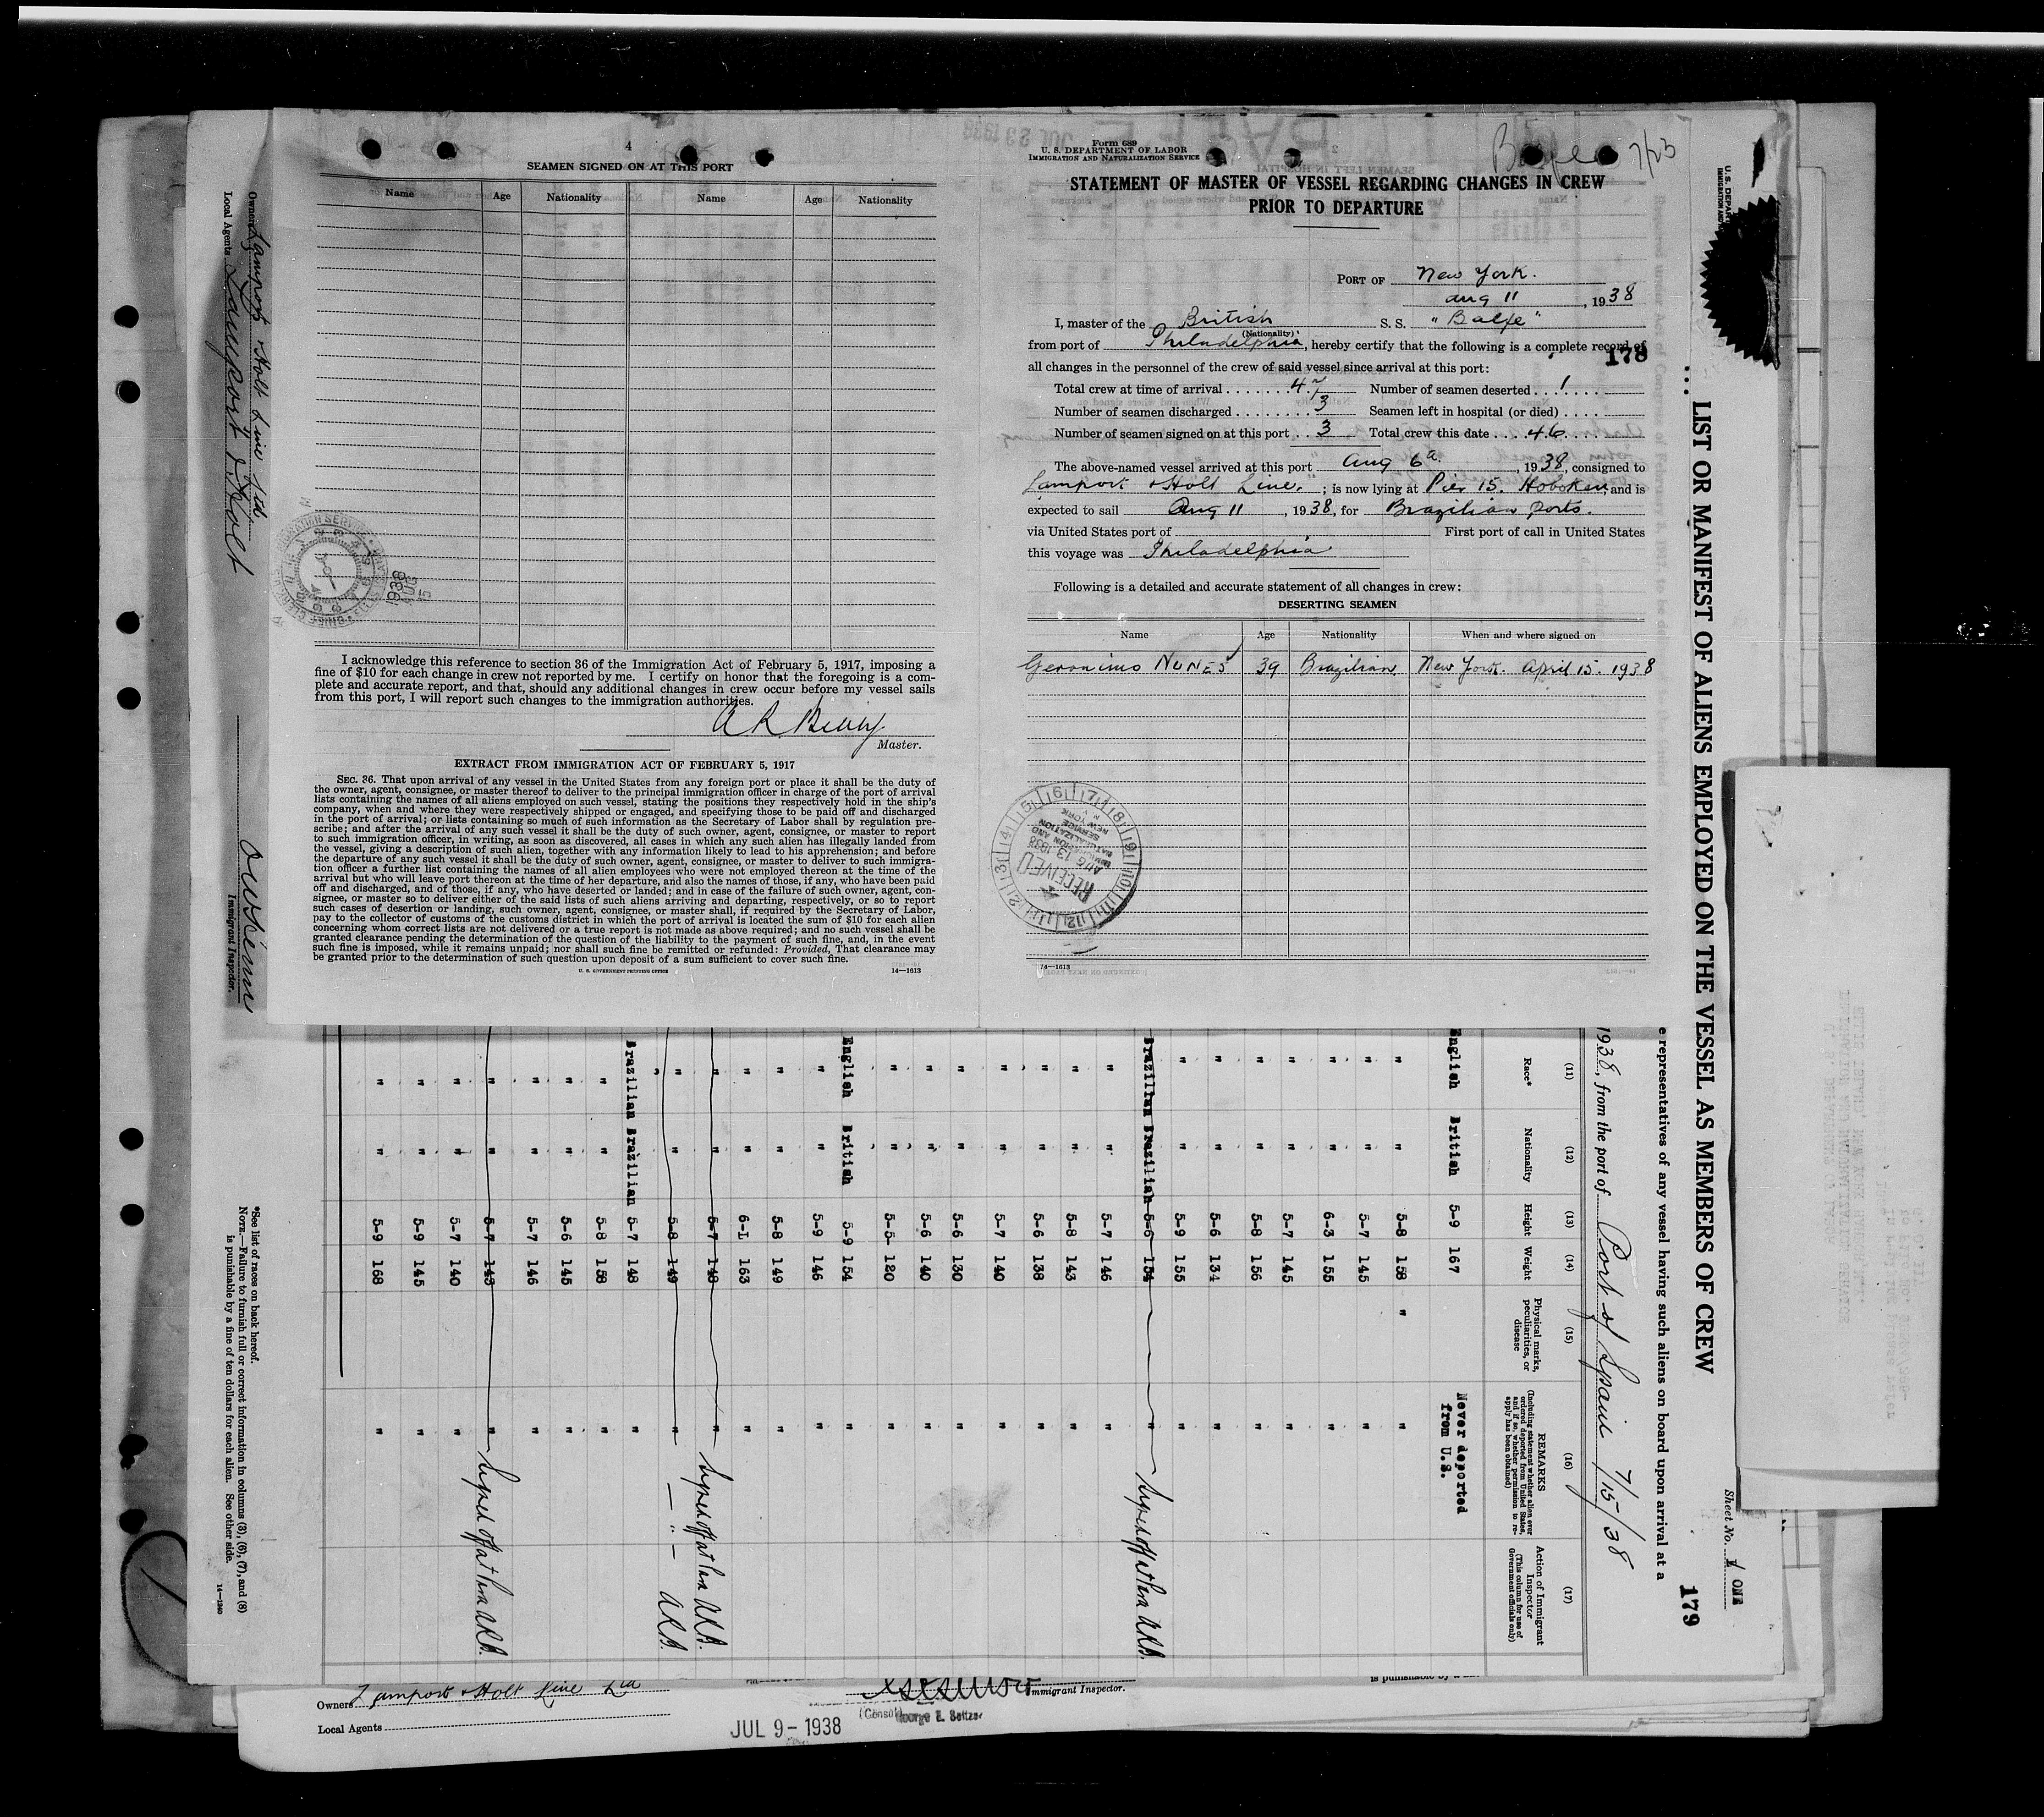 4
SEAMEN SIGNED ON AT THIS PORT
Name Age Nationality Name Age Nationality
I acknowledge this reference to section 36 of the Immigration Act of February 5, 1917, imposing a
fine of $10 for each change in crew not reported by me. I certify on honor that the foregoing is a com-
plete and accurate report, and that, should any additional changes in crew occur before my vessel sails
from this port, I will report such changes to the immigration authorities.
Master.
EXTRACT FROM IMMIGRATION ACT OF FEBRUARY 5, 1917
SEC. 36. That upon arrival of any vessel in the United States from any foreign port or place it shall be the duty of
the owner, agent, consignee, or master thereof to deliver to the principal immigration officer in charge of the port of arrival
lists containing the names of all aliens employed on such vessel, stating the positions they respectively hold in the ship's
company, when and where they were respectively shipped or engaged, and specifying those to be paid off and discharged
in the port of arrival; or lists containing so much of such information as the Secretary of Labor shall by regulation pre-
scribe; and after the arrival of any such vessel it shall be the duty of such owner, agent, consignee, or master to report
to such immigration officer, in writing, as soon as discovered, all cases in which any such alien has illegally landed from
the vessel, giving a description of such alien, together with any information likely to lead to his apprehension; and before
the departure of any such vessel it shall be the duty of such owner, agent, consignee, or master to deliver to such immigra-
tion officer a further list containing the names of all alien employees who were not employed thereon at the time of the
arrival but who will leave port thereon at the time of her departure, and also the names of those, if any, who have been paid
off and discharged, and of those, if any, who have deserted or landed; and in case of the failure of such owner, agent, con-
signee, or master so to deliver either of the said lists of such aliens arriving and departing, respectively, or so to report
such cases of desertion or landing, such owner, agent, consignee, or master shall, if required by the Secretary of Labor,
pay to the collector of customs of the customs district in which the port of arrival is located the sum of $10 for each alien
concerning whom correct lists are not delivered or a true report is not made as above required; and no such vessel shall be
granted clearance pending the determination of the question of the liability to the payment of such fine, and, in the event
such fine is imposed, while it remains unpaid; nor shall such fine be remitted or refunded: Provided, That clearance may
be granted prior to the determination of such question upon deposit of a sum sufficient to cover such fine.
U. S. GOVERNMENT PRINTING OFFICE 14—1613
Form 689
U. S. DEPARTMENT OF LABOR
IMMIGRATION AND NATURALIZATION SERVICE
Balfe 7/23
STATEMENT OF MASTER OF VESSEL REGARDING CHANGES IN CREW
PRIOR TO DEPARTURE
PORT OF New York.
Aug 11, 1938
I, master of the British S. S. "Balfe"
(Nationality)
from port of Philadelphia, hereby certify that the following is a complete record of
178
all changes in the personnel of the crew of said vessel since arrival at this port:
Total crew at time of arrival 47 Number of seamen deserted 1
Number of seamen discharged 3 Seamen left in hospital (or died)
Number of seamen signed on at this port 3 Total crew this date 46
The above-named vessel arrived at this port Aug 6, 1938, consigned to
Lamport & Holt Line.; is now lying at Pier 15. Hoboken, and is
expected to sail Aug 11, 1938, for Brazilian Ports.
via United States port of First port of call in United States
this voyage was Philadelphia
Following is a detailed and accurate statement of all changes in crew:
DESERTING SEAMEN
Name Age Nationality When and where signed on
Geronimo NUNES 39 Brazilian New York. April 15. 1938
RECEIVED
AUG 13 1938
IMMIGRATION AND
NATURALIZATION
SERVICE
NEW YORK
14—1613
Sheet No. 1 ONE
179
LIST OR MANIFEST OF ALIENS EMPLOYED ON THE VESSEL AS MEMBERS OF CREW
representatives of any vessel having such aliens on board upon arrival at a
1938, from the port of Port of Spain 7/15/38
(11) (12) (13) (14) (15) (16) (17)
Race* Nationality Height Weight Physical marks, peculiarities, or disease REMARKS (Including statement whether alien ever ordered deported from United States, and if so, whether permission to reapply has been obtained) Action of Immigrant Inspector (This column for use of Government officials only)
English British 5-9 167 Never deported from U.S.
" " 5-8 158 " "
" " 5-7 145 "
" " 6-3 155 "
" " 5-7 145 "
" " 5-8 156 "
" " 5-6 134 "
" " 5-9 155 "
Brazilian Brazilian 5-6 154 " Signed off at
" " 5-7 146 "
" " 5-8 143 "
" " 5-6 138 "
" " 5-7 140 "
" " 5-6 130 "
" " 5-6 140 "
" " 5-5 120 "
English British 5-9 154 "
" " 5-9 146 "
" " 5-8 149 "
" " 6-1 163 "
" " 5-7 148 " Signed off at
" " 5-8 149 "
Brazilian Brazilian 5-7 148
" " 5-8 158 "
" " 5-6 145 "
" " 5-7 146 "
" " 5-7 143 " Signed off at
" " 5-7 140 "
" " 5-9 145 "
" " 5-9 168 "
*See list of races on back hereof.
NOTE.—Failure to furnish full or correct information in columns (3), (6), (7), and (8)
is punishable by a fine of ten dollars for each alien. See other side.
14—1240
Owners Lamport & Holt Line Ltd
Local Agents Lamport & Holt
Immigrant Inspector.
Owners Lamport & Holt Line Ltd
Local Agents
JUL 9-1938
Immigrant Inspector.
George E. Seltzer